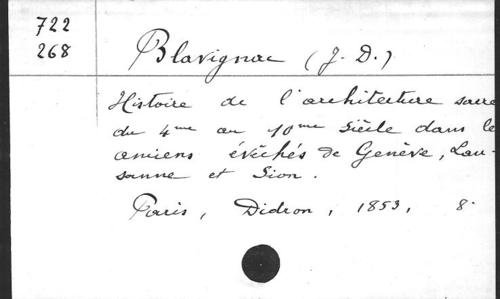 722
268
Blavignac (J. D.)
Histoire de l'architecture sacrée
du 4me au 10me siècle dans les
anciens évêchés de Genève, Lau-
sanne et Sion.
Paris, Didron, 1853, 8.